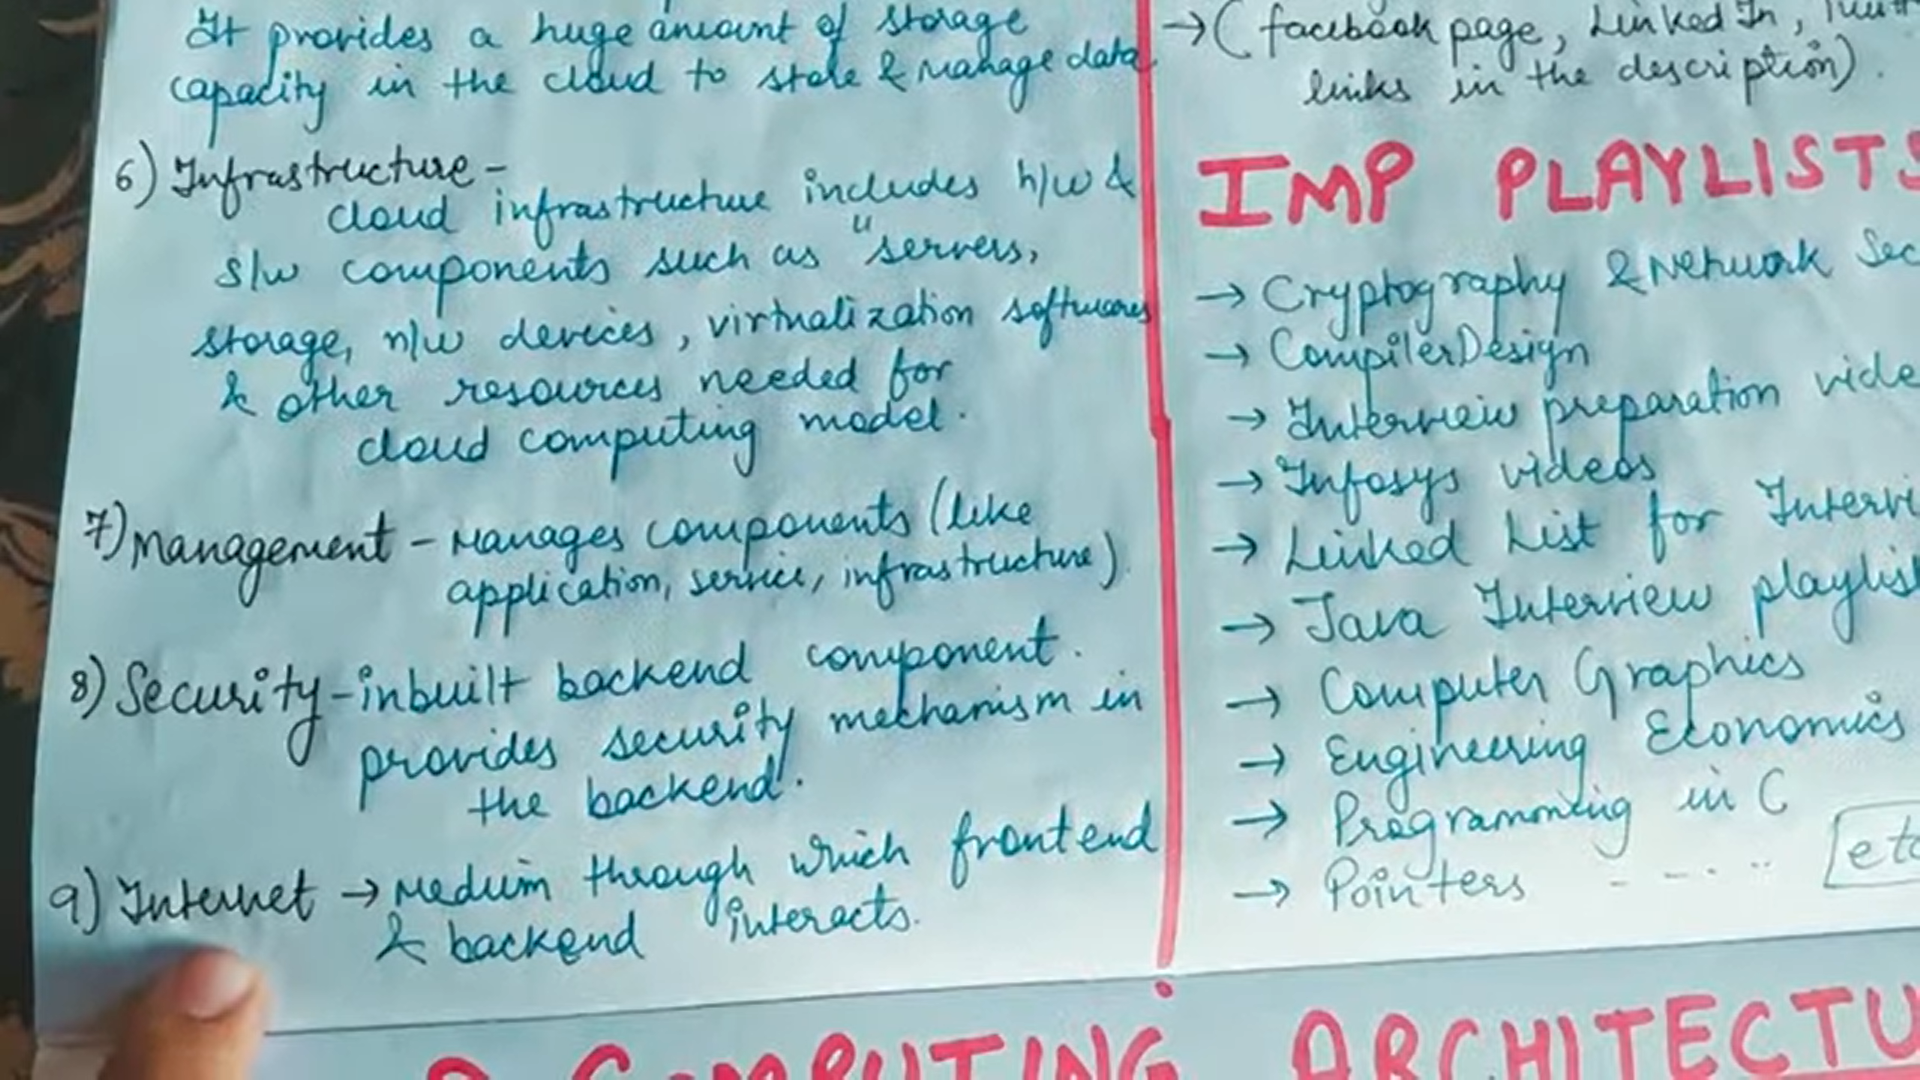 It provides a huge amount of storage
capacity in the cloud to store & manage data
6) Infrastructure -
cloud infrastructure includes h/w &
s/w components such as "servers,
storage, n/w devices, virtualization softwares
& other resources needed for
cloud computing model.
7) Management - Manages components (like
application, service, infrastructure)
8) Security - inbuilt backend component.
provides security mechanism in
the backend.
9) Internet → Medium through which frontend
& backend interacts.
→ (facebook page, Linked In,
links in the description).
IMP PLAYLISTS
→ Cryptography & Network Sec
→ Compiler Design
→ Interview preparation vide
→ Infosys videos
→ Linked List for Intervi
→ Java Interview playlist
→ Computer Graphics
→ Engineering Economics
→ Programming in C
→ Pointers - - - . .. etc
COMPUTING ARCHITECTU